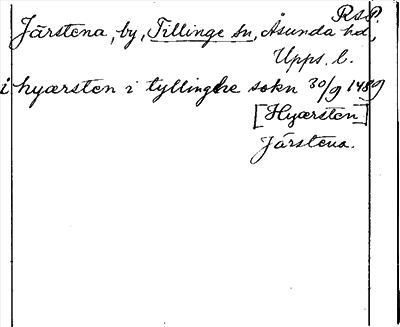 RSP.
Järstena, by, Tillinge sn, Åsunda hd,
Upps. l.
i hyærsten i tyllinghe sokn 30/9 1489
[Hyærsten]
Järstena.